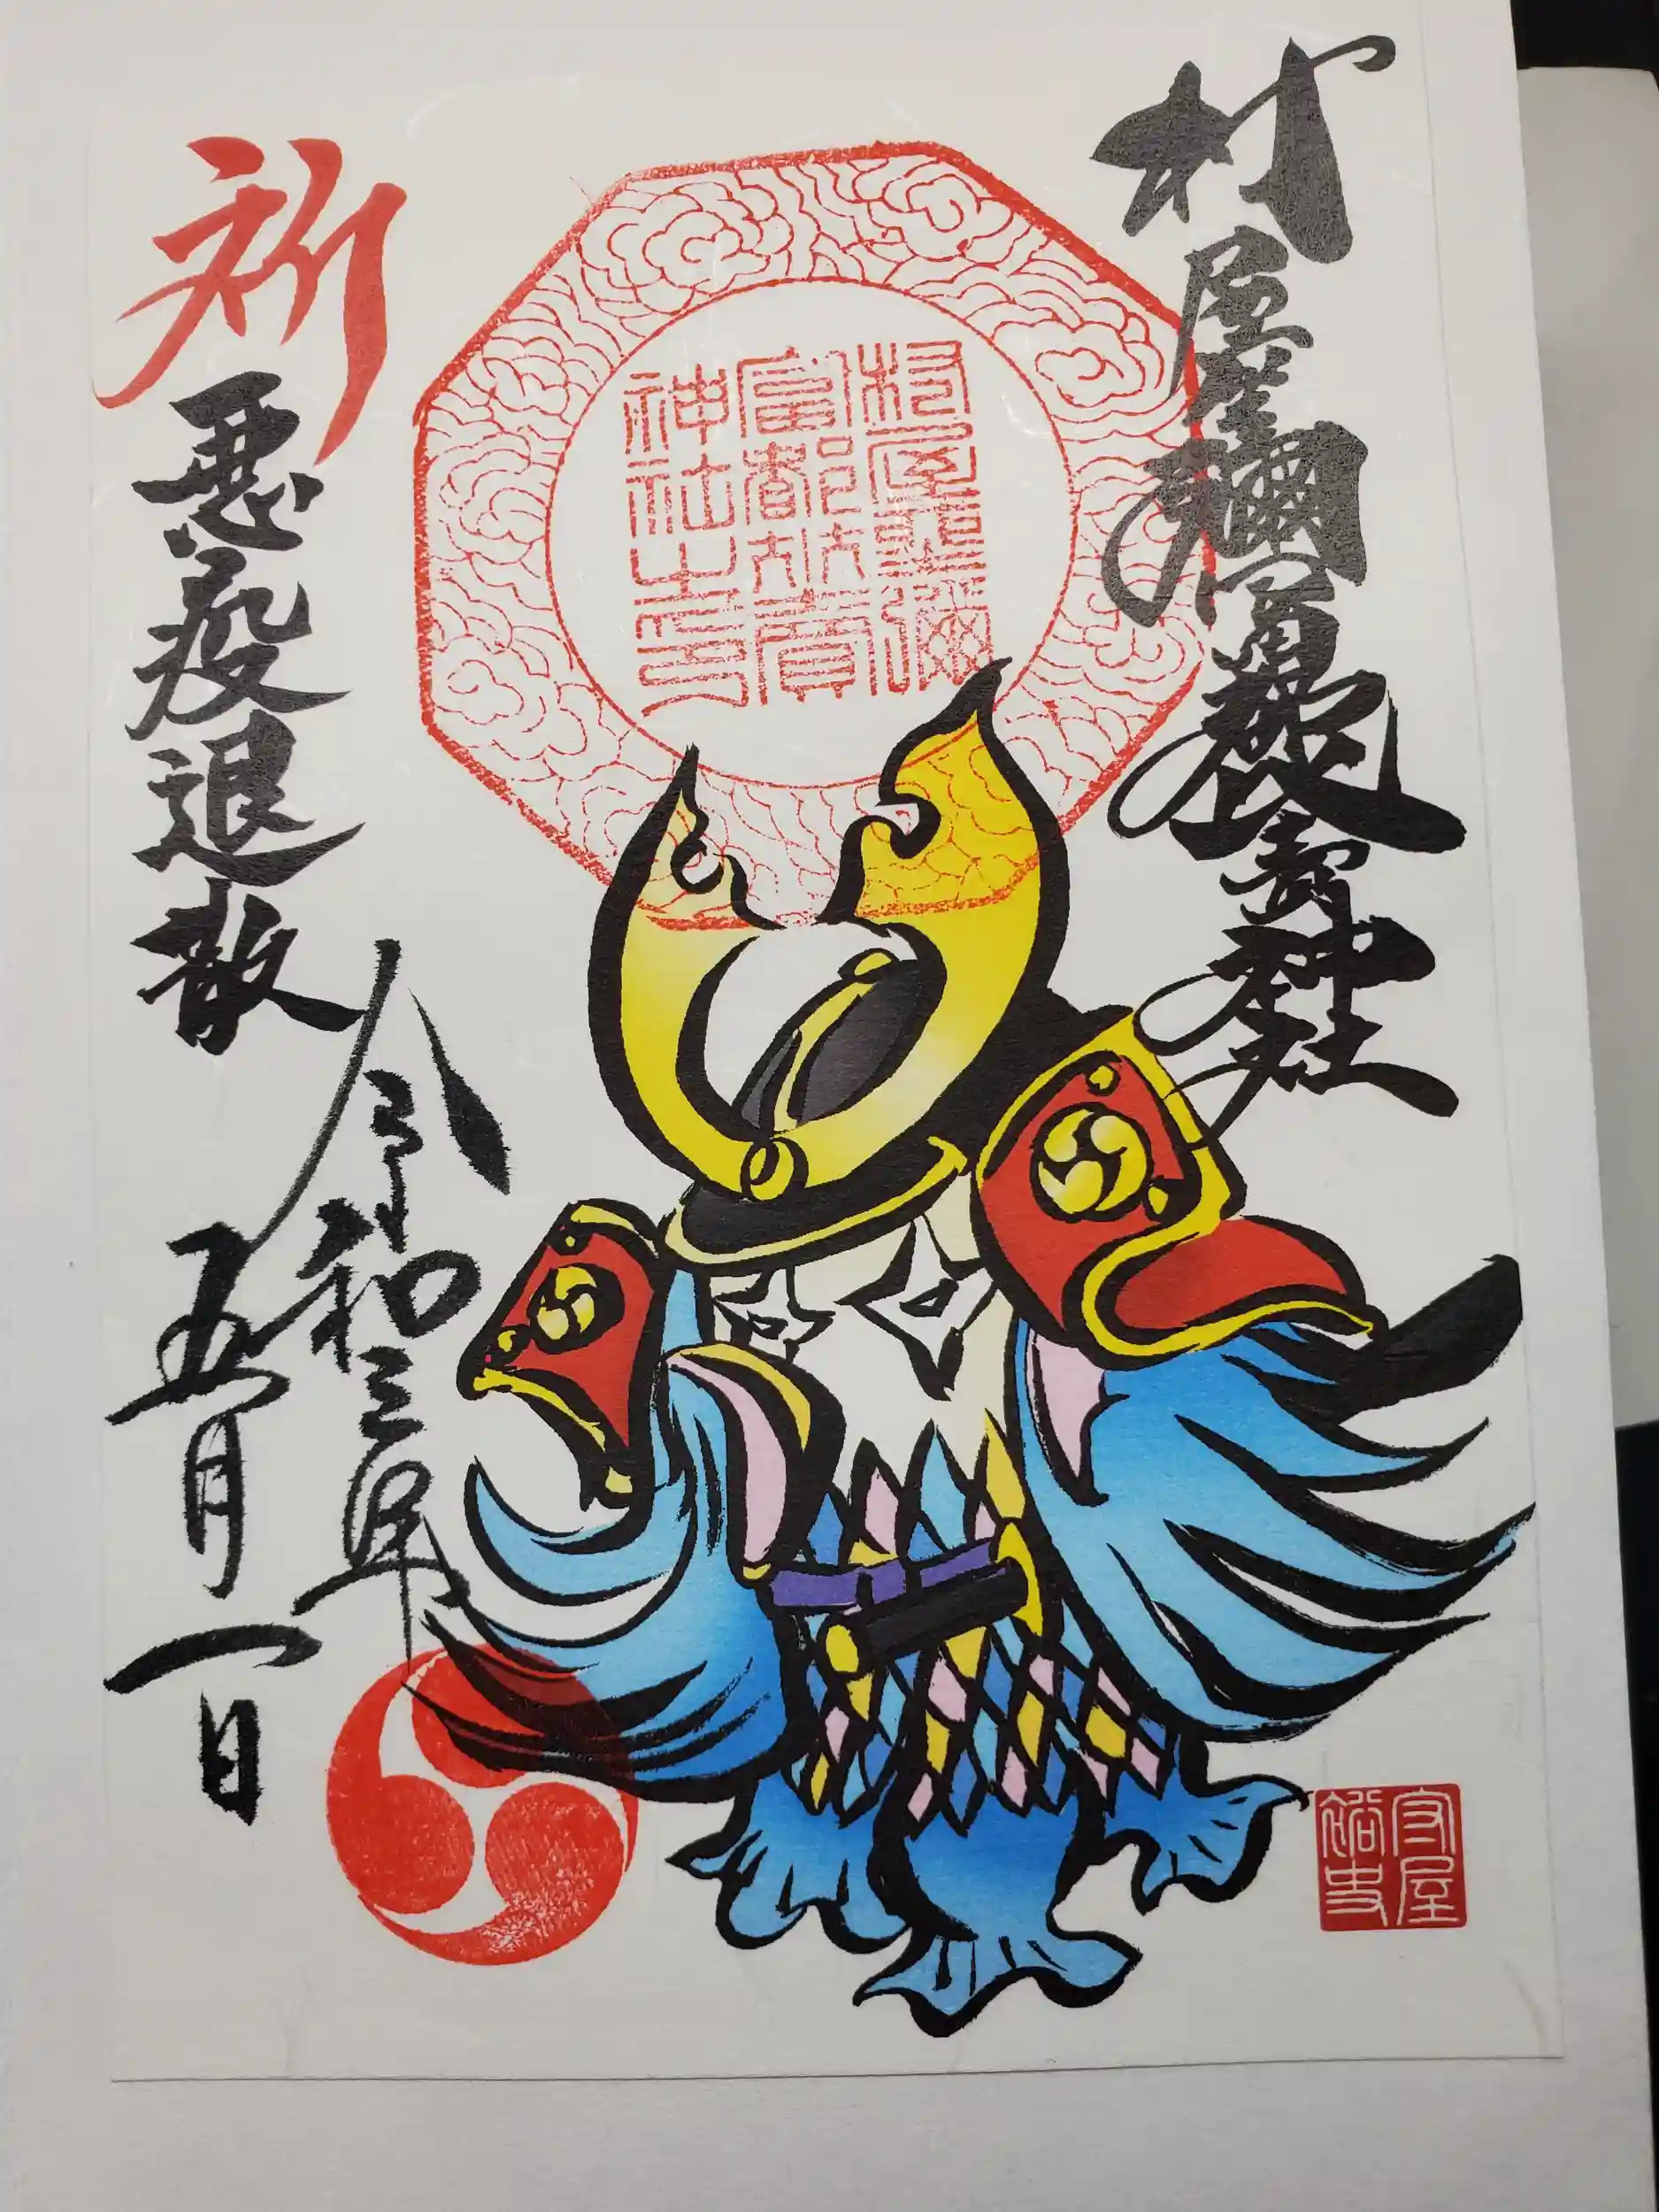 村屋坐彌冨都比賣神社
村屋坐彌
冨都比賣
神社之印
祈
悪疫退散
令和三年
五月一日
守屋
裕史